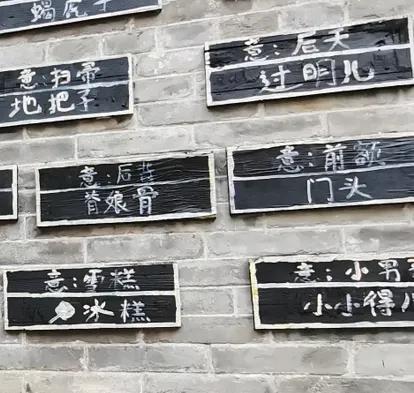 蝎虎子
意:后天
过明儿
意:扫帚
地把子
意:前额
门头
意:后
脊娘骨
意:雪糕
冰糕
意:小男
小小得儿